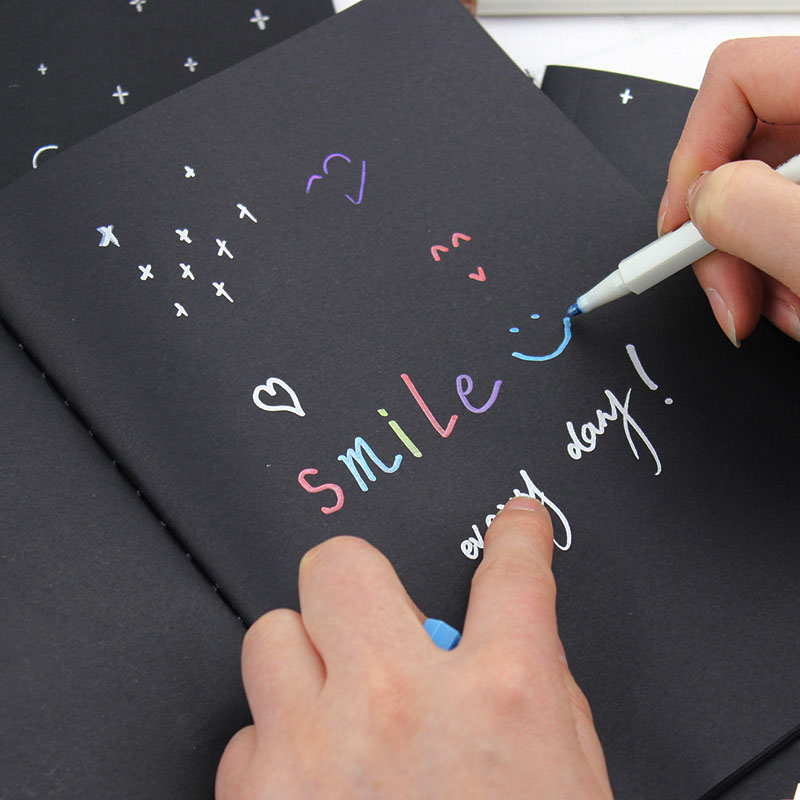 smile
every day!